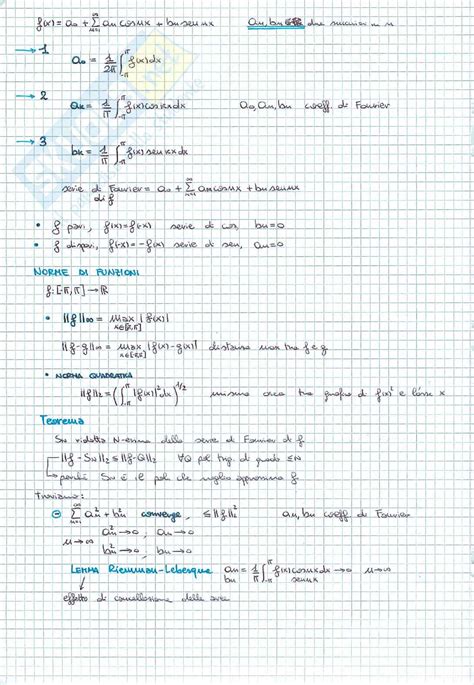 f(x) = a₀ + ∞Σn=1 an cosnx + bn sennx an, bn due successioni in ℝ
→ 1
a₀ = 1/2π ∫-π^π f(x)dx
→ 2
aκ = 1/π ∫-π^π f(x)cosκxdx a₀, an, bn coeff. di Fourier
→ 3
bκ = 1/π ∫-π^π f(x)senκxdx
serie di Fourier = a₀ + ∞Σn=1 an cosnx + bn sennx
di f
• f pari, f(x)=f(-x) serie di cos, bn=0
• f dispari, f(-x)=-f(x) serie di sen, an=0
NORME DI FUNZIONI
f: [-π, π] → ℝ
• ‖f‖∞ = max x∈[-π,π] |f(x)|
‖f-g‖∞ = max x∈[-π,π] |f(x)-g(x)| distanza max tra f e g
• NORMA QUADRATICA
‖f‖₂ = (∫-π^π |f(x)|² dx)^1/2 misura area tra grafico di f(x)² e l'asse x
Teorema
SN ridotta N-esima della serie di Fourier di f
‖f - SN‖₂ ≤ ‖f-Q‖₂ ∀Q pol trig. di grado ≤N
perché SN è il pol che meglio approssima f.
Troviamo:
∞Σn=1 an² + bn² converge, ≤ ‖f‖² an, bn coeff. di Fourier
n→∞ an²→0, an→0
bn²→0, bn→0
LEMMA Riemman-Lebesgue an bn = 1/π ∫-π^π f(x) cosnx sennx dx → 0 n→∞
effetto di cancellazione delle aree